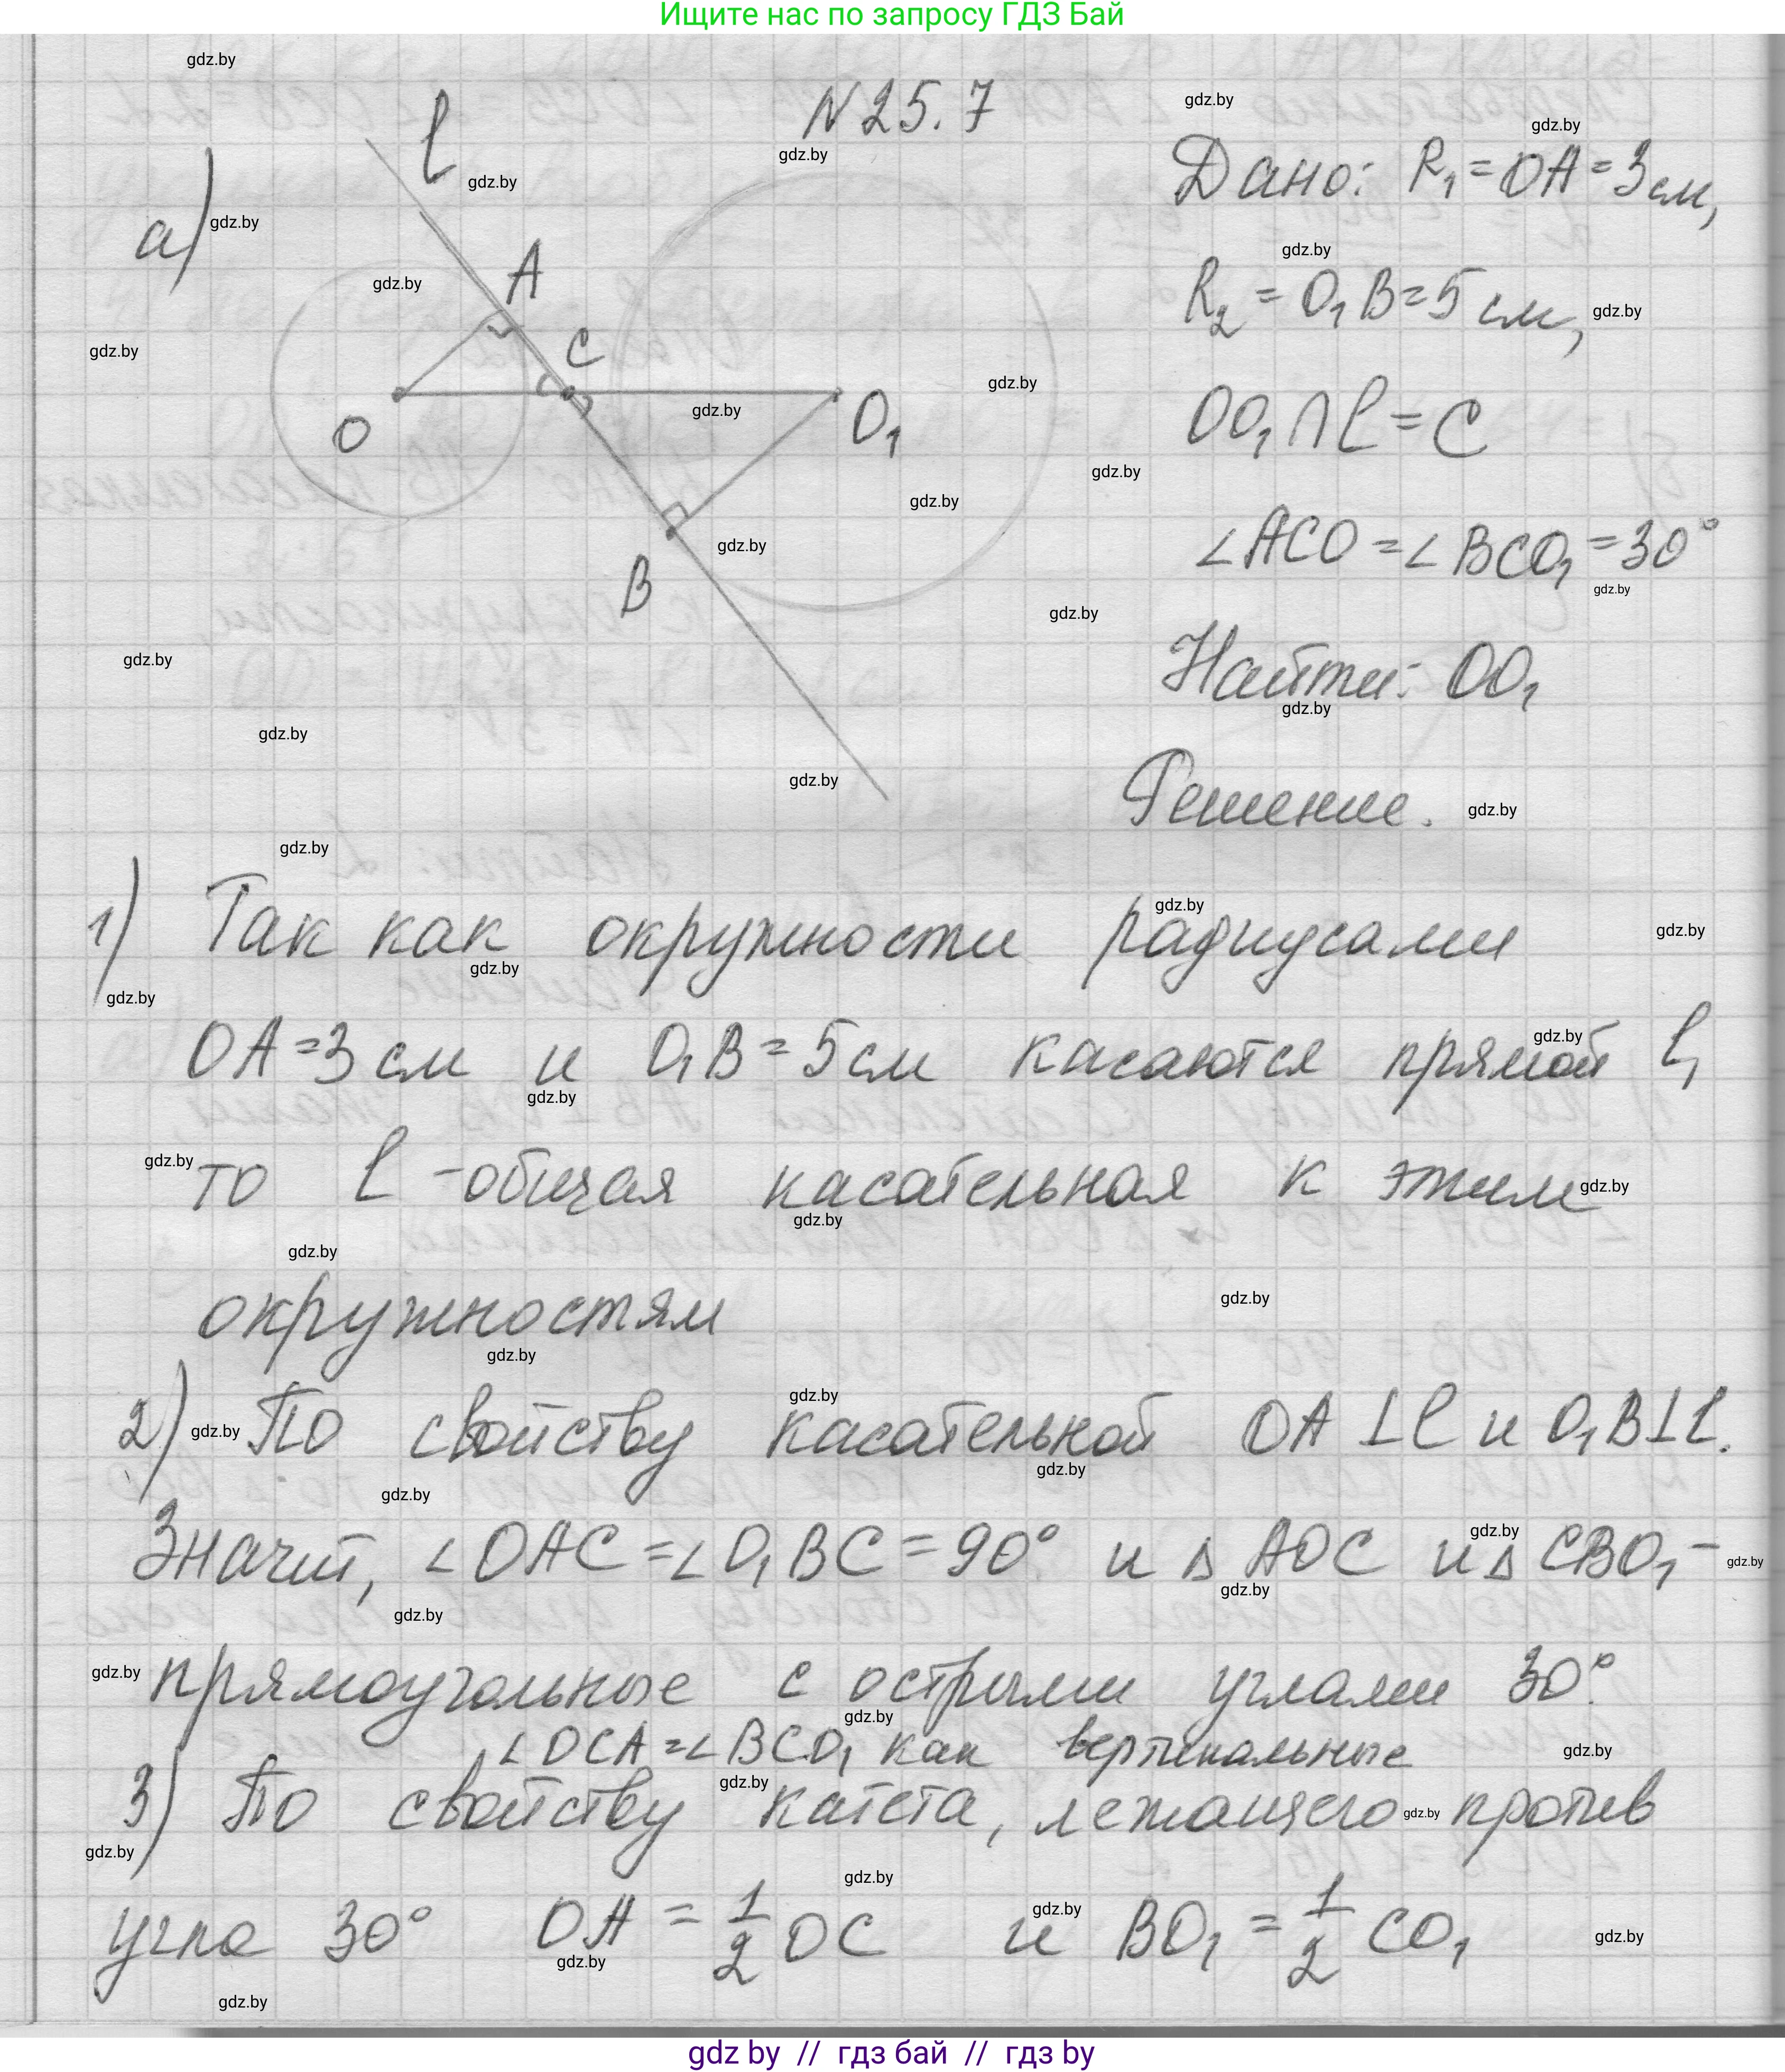 Ищите нас по запросу ГДЗ Бай
N 25.7
а)
l
A
C
O
O₁
B
Дано: R₁ = OA = 3 см,
R₂ = O₁B = 5 см,
OO₁ ∩ l = C
∠ACO = ∠BCO₁ = 30°
Найти: OO₁
Решение.
1) Так как окружности радиусами
OA = 3 см и O₁B = 5 см касаются прямой l,
то l - общая касательная к этим
окружностям
2) По свойству касательной OA ⊥ l и O₁B ⊥ l.
Значит, ∠OAC = ∠O₁BC = 90° и △ AOC и △ CBO₁ -
прямоугольные с острыми углами 30°.
∠OCA = ∠BCO₁ как вертикальные
3) По свойству катета, лежащего против
угла 30° OA = 1/2 OC и BO₁ = 1/2 CO₁
gdz by // гдз бай // гдз by